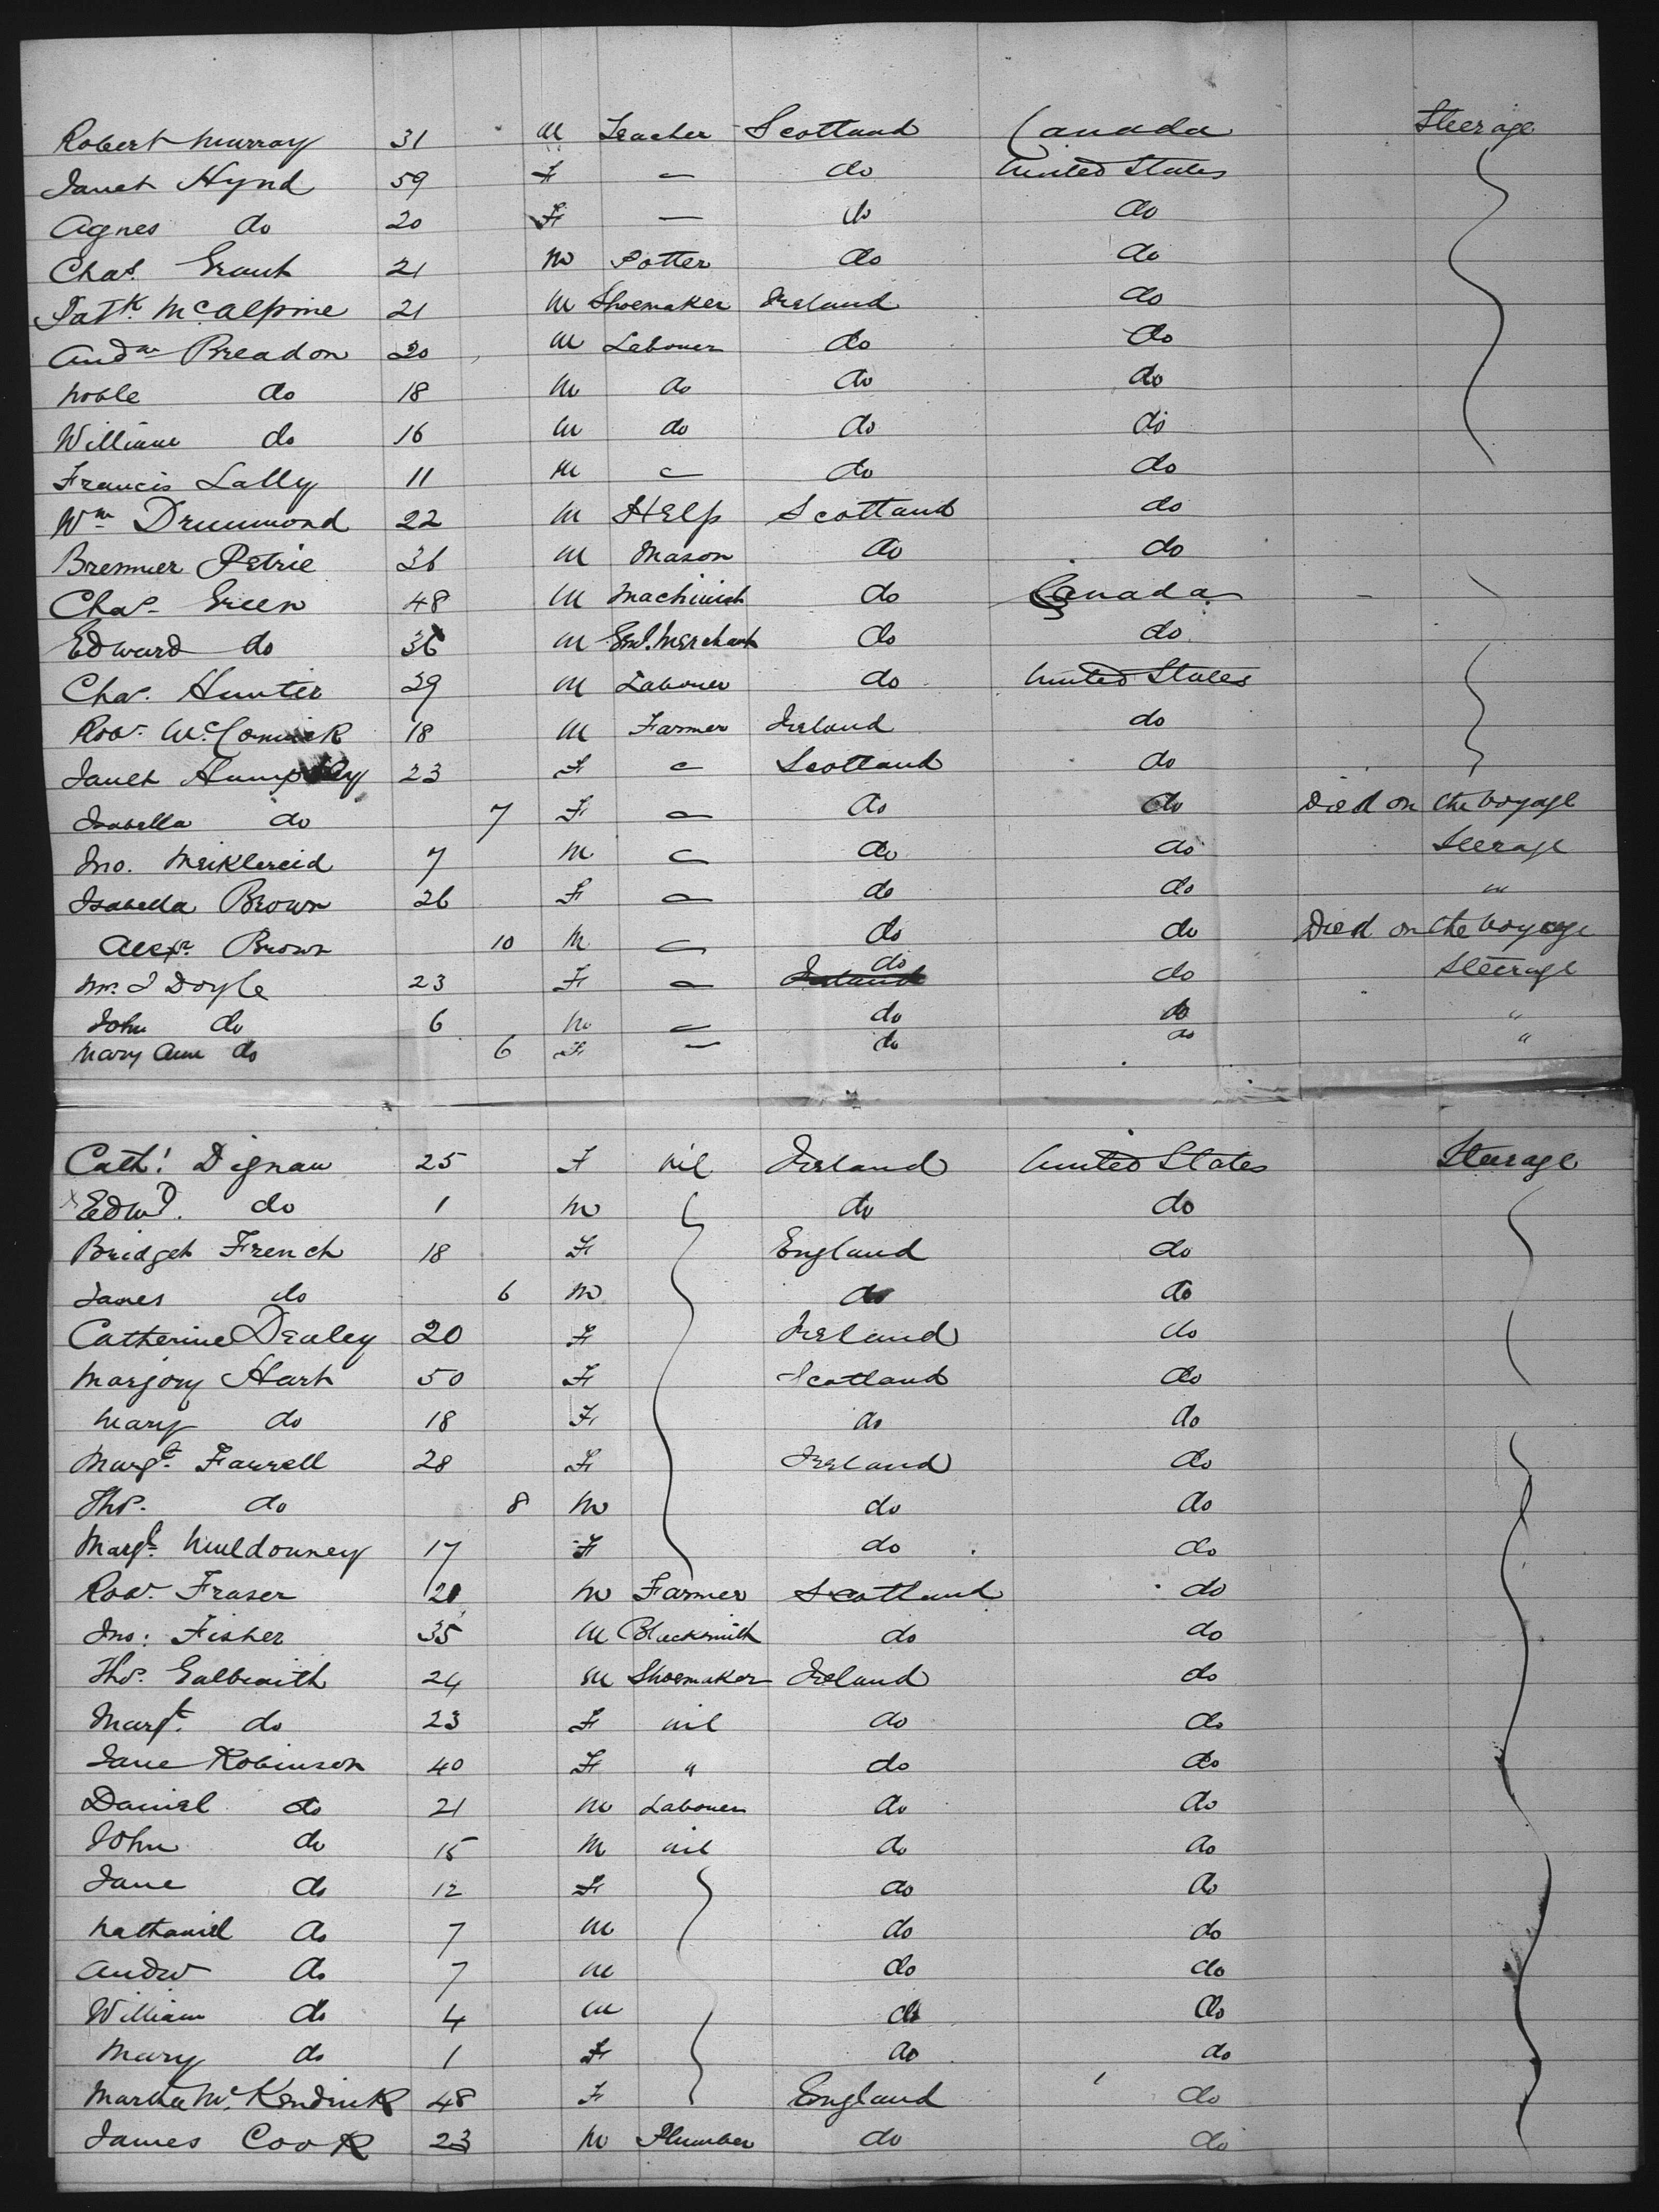 Robert Murray 31 M Teacher Scotland Canada Steerage
Janet Hynd 59 F — do United States
Agnes do 20 F — do do
Chas. Grant 21 M Potter do do
Patk. McAlpine 21 M Shoemaker Ireland do
Andw Breadon 20 M Labourer do do
Noble do 18 M do do do
William do 16 M do do do
Francis Lally 11 M — do do
Wm Drummond 22 M Help Scotland do
Bremner Petrie 36 M Mason do do
Chas. Green 48 M Machinist do Canada
Edward do 36 M Merchant do do
Chas. Hunter 29 M Labourer do United States
Robt. McCormick 18 M Farmer Ireland do
Janet Humphry 23 F — Scotland do
Isabella do 7 F — do do Died on the Voyage
Jno. Meiklereid 7 M — do do Steerage
Isabella Brown 26 F — do do "
Alexr. Brown 10 M — do do Died on the Voyage
Mrs. J Doyle 23 F — Ireland do do Steerage
John do 6 M — do do "
Mary Ann do 6 F — do do "
Cath. Dignan 25 F nil Ireland United States Steerage
Edwd. do 1 M do do
Bridget French 18 F England do
James do 6 M do do
Catherine Dealey 20 F Ireland do
Marjory Hart 50 F Scotland do
Mary do 18 F do do
Margt. Farrell 28 F Ireland do
Thos. do 8 M do do
Margt. Muldouney 17 F do do
Robt. Fraser 20 M Farmer Scotland do
Jno: Fisher 35 M Blacksmith do do
Thos. Galbraith 24 M Shoemaker Ireland do
Margt. do 23 F nil do do
Jane Robinson 40 F " do do
Daniel do 21 M Labourer do do
John do 15 M nil do do
Jane do 12 F do do
Nathaniel do 7 M do do
Andw do 7 M do do
William do 4 M do do
Mary do 1 F do do
Martha McKendrick 48 F England do
James Cook 23 M Plumber do do